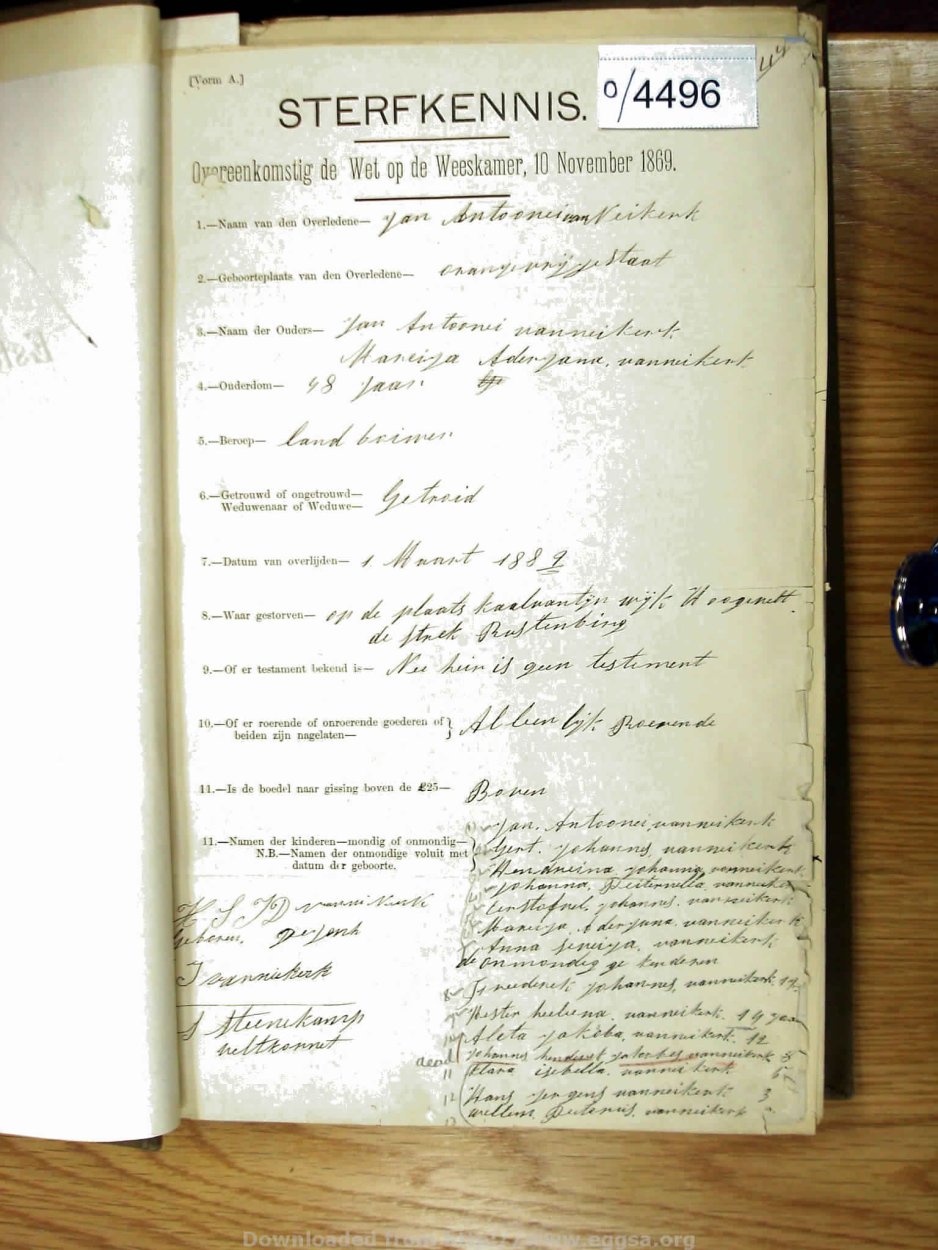 [Vorm A.]
0/4496
STERFKENNIS.
Overeenkomstig de Wet op de Weeskamer, 10 November 1869.
1.—Naam van den Overledene— Jan Antoonei van Neikerk
2.—Geboorteplaats van den Overledene— oranyevrij je Staat
3.—Naam der Ouders— Jan Antoonei vanneikerk
Mareiya Aderjana, vanneikerk
4.—Ouderdom— 48 Jaar
5.—Beroep— land
6.—Getrouwd of ongetrouwd—
Weduwenaar of Weduwe— Getroid
7.—Datum van overlijden— 1 Maart 1889
8.—Waar gestorven— op de plaats wijk Hoogevelt
de strek Rustenburg
9.—Of er testament bekend is— Nee is geen testement
10.—Of er roerende of onroerende goederen of
beiden zijn nagelaten— Al leen lyk Roerende
11.—Is de boedel naar gissing boven de £25— Boven
11.—Namen der kinderen—mondig of onmondig—
N.B.—Namen der onmondige voluit met
datum der geboorte.
Jan Antoonei vanneikerk
Gert Johannes vanneikerk
Hendreina Johanna vanneikerk
Johanna vanneikerk
Johannes vanneikerk
Mareiya Aderjana vanneikerk
Anna vanneikerk
de onmondig ge kenderen
Freederek Johannes vanneikerk 17
Hester heelena vanneikerk 14 jaar
Aleta Jakoba vanneikerk 12
dead Johannes vanneikerk 8
11 Klara isebella vanneikerk 5
12 Hans vanneikerk 3
13 willem Peterus vanneikerk
H S J D vanneikerk
Geboren De Jonh
J vanniekerk
J Steenekamp
veltkornet
Downloaded from www.eggsa.org